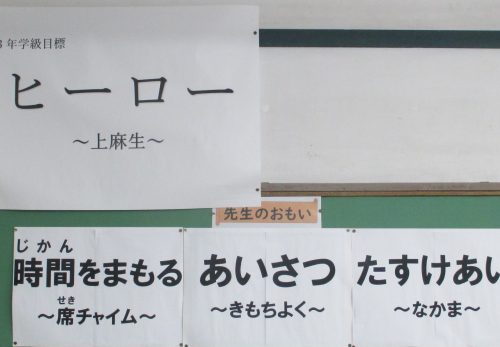 3年学級目標
ヒーロー
～上麻生～
先生のおもい
じかん
時間をまもる
せき
～席チャイム～
あいさつ
～きもちよく～
たすけあい
～なかま～